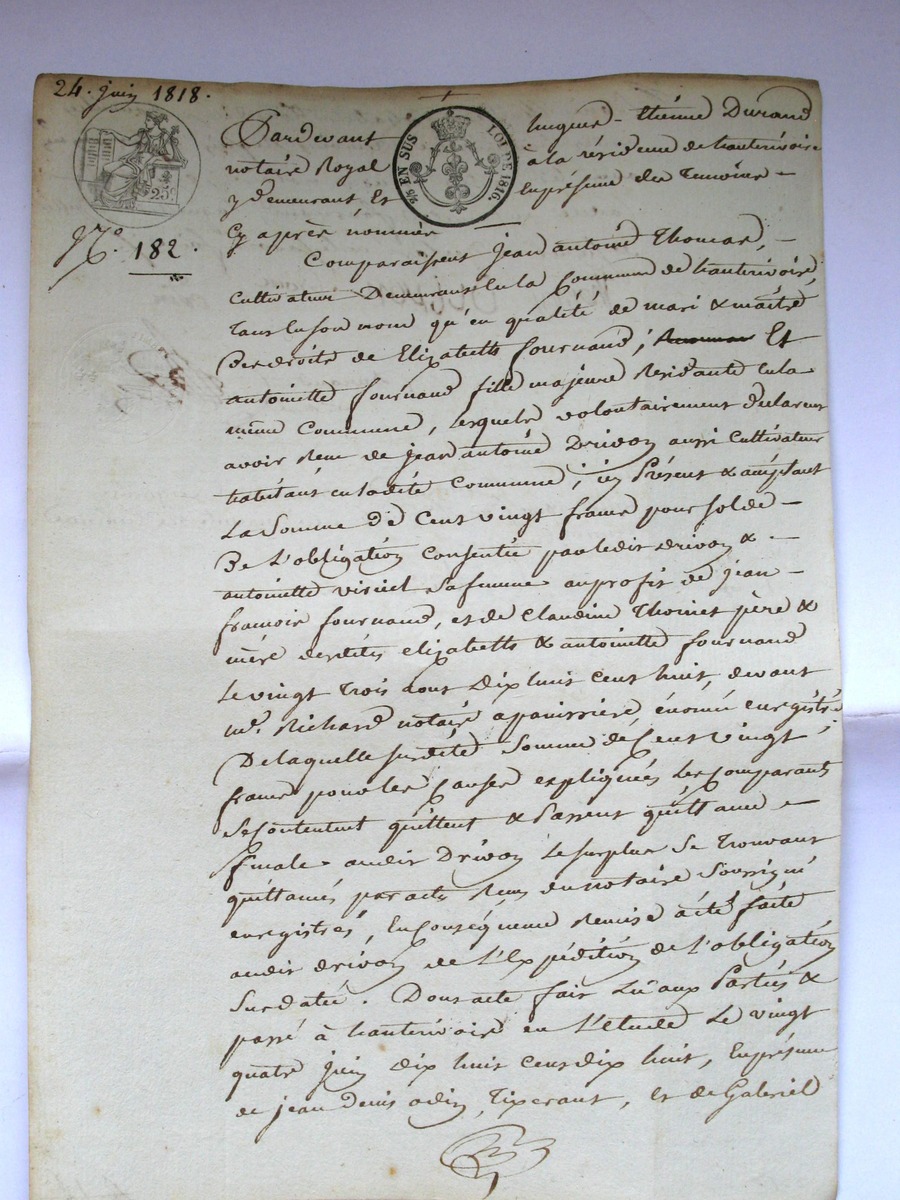 24. juin 1818.
25c
5/5 EN SUS LOI DE 1816.
N.o 182.
Pardevant hugues-étienne Durand
notaire Royal à la résidence de hauterivoire
y demeurant Et En présence des Temoins
Cy après nommés
Comparaissent jean antoine Thomas,
Cultivateur Demeurant En la Commune de hauterivoire,
tant En son nom qu'en qualité de mari & maitre
Des droits de Elizabeth fournand; Et
antoinette fournand fille majeure Residante En la
même Commune, lesquels volontairement déclarent
avoir Reçu de jean antoine Drivon aussi Cultivateur
habitant en ladite Commune; icy Présent & acceptant
La Somme De Cent vingt francs pour solde
De L'obligation Consentie par ledit Drivon &
antoinette sa femme au profit de jean
francois fournand, et de Claudine Thoinet père &
mère desdites elizabeth & antoinette fournand
Le vingt trois aout Dix huit Cent huit, devant
me. Richard notaire a panissière, énoncé enregistré
De laquelle susdite Somme de Cent vingt
francs pour les Causes expliquées les Comparants
Se Contentent quittent & Passent quittance
finale audit Drivon Le surplus Se trouvant
quittancé par acte Reçu du notaire Soussigné
enregistrés, En Conséquence Remise a été faite
audit drivon de L'Expédition de L'obligation
Susdatée. Dont acte fait Lu aux Parties &
passé à hauterivoire en L'étude Le vingt
quatre juin Dix huit Cent dix huit, En présence
de jean denis odin, Tixerant, Et de Gabriel